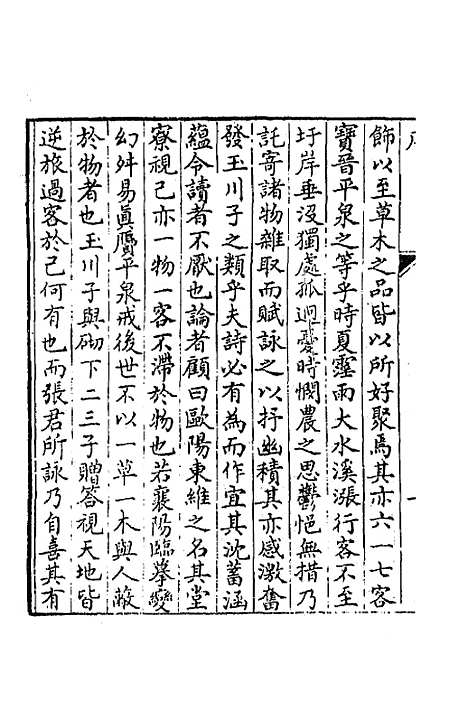 飾以至草木之品皆以所好聚焉其亦六一七客
寶晉平泉之等乎時夏霪雨大水溪漲行客不至
圩岸垂沒獨處孤迥憂時憫農之思鬱悒無措乃
託寄諸物雜取而賦詠之以抒幽積其亦感激奮
發玉川子之類乎夫詩必有為而作宜其沈蓄涵
蘊令讀者不厭也論者顧曰歐陽東維之名其堂
寮視己亦一物一客不滯於物也若襄陽臨摹變
幻舛易真贗平泉戒後世不以一草一木與人蔽
於物者也玉川子與砌下二三子贈答視天地皆
逆旅過客於己何有也而張君所詠乃自喜其有